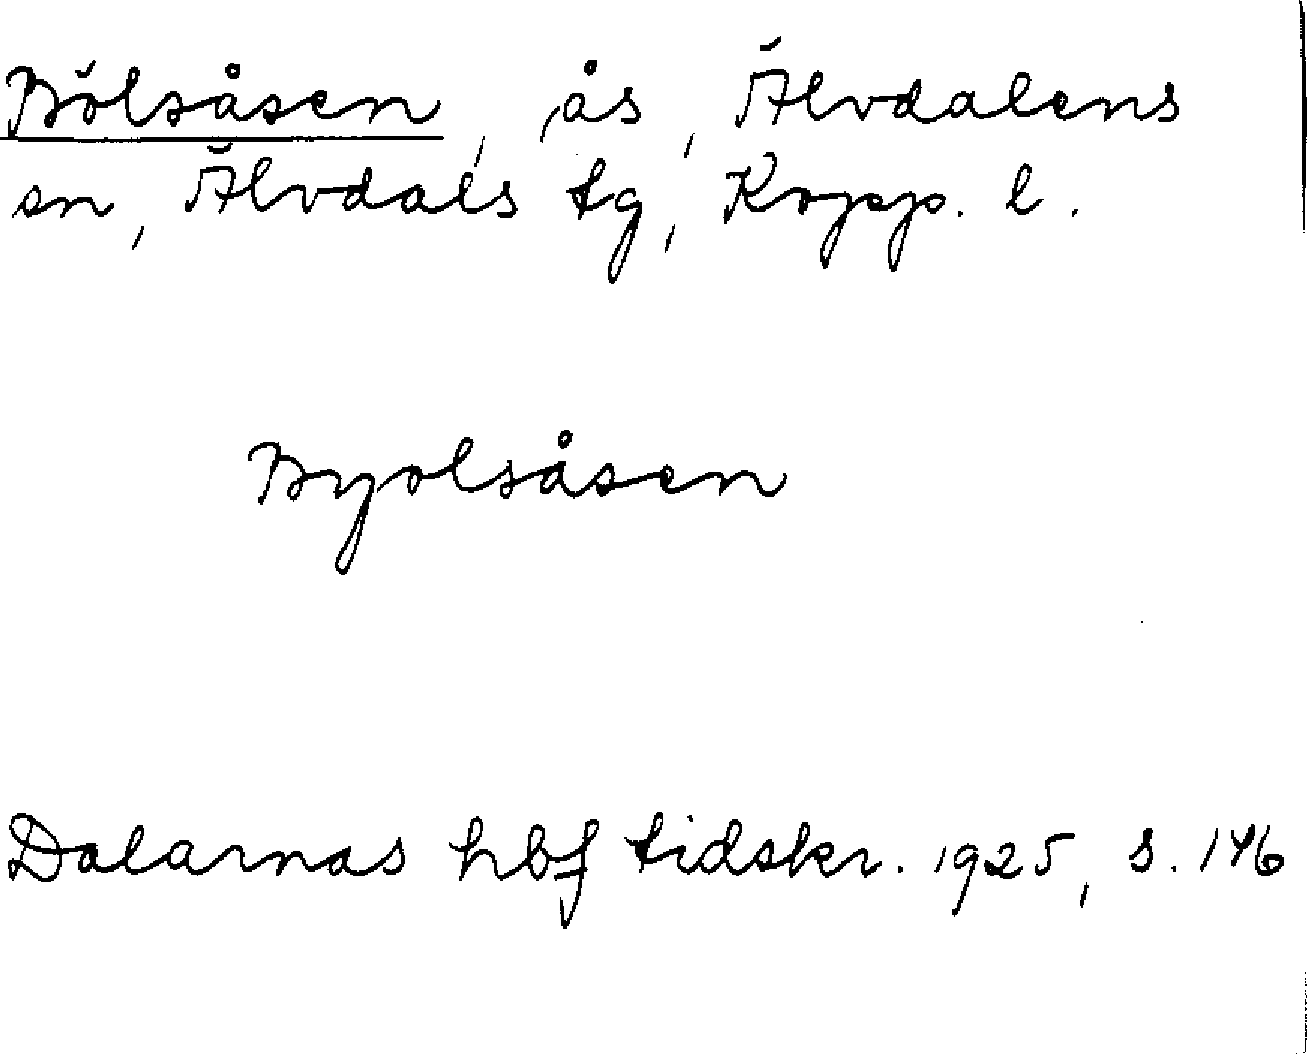 Bölsåsen, ås, Älvdalens
sn, Älvdals tg, Kopp. l.
Byolsåsen
Dalarnas hbf tidskr. 1925, s. 146